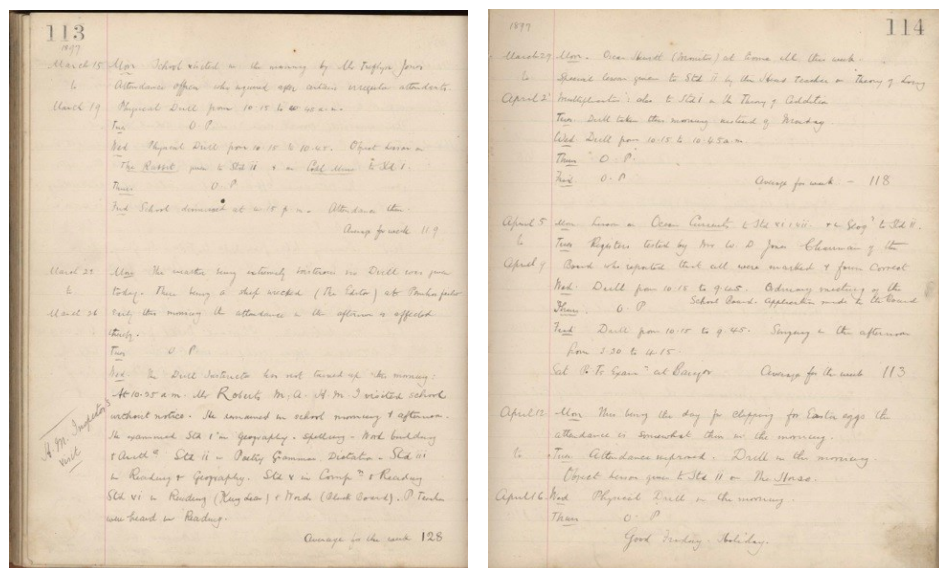 113
1897
March 15 Mon School visited in the morning by Mr Jones
to Attendance officer who irregular attendants.
March 19 Physical Drill from 10.15 to 10.45 a.m.
Tues O. P.
Wed Physical Drill from 10.15 to 10.45. Object lesson on
The Rabbit given to Std II & on Coal Mine to Std I.
Thurs O. P
Frid School dismissed at p.m. Attendance thin.
Average for week 119
March 22 Mon The weather being extremely boisterous no Drill was given
to today. There being a ship wrecked (The Editor) at
March 26 early this morning the attendance in the afternoon is affected
thereby.
Tues O P.
Wed. The Drill Instructor has not turned up this morning:
At 10.25 a.m. Mr Roberts M.A. H.M.I visited school
H. M. Inspector's visit
without notice. He remained in school morning & afternoon.
He examined Std I in Geography - Spelling - Word building
& Arith. Std II in Poetry Grammar, Dictation - Std III
in Reading & Geography. Std V in Comp & Reading
Std VI in Reading (King Lear) & Words (Black Board). P Teacher
were heard in Reading.
Average for the week 128
114
1897
March 29 Mon. Hewitt (Monitor) at home all this week.
to Special lesson given to Std II by the Head teacher on "Theory of Long
April 2 multiplication": also to Std I on the Theory of Addition
Tues. Drill taken this morning instead of Monday.
Wed. Drill from 10.15 to 10.45 a.m.
Thurs O P.
Frid. O. P Average for week - 118
April 5 Mon Lesson on Ocean Currents to Std & Geog to Std II.
to Tues Registers tested by Mr W. D. Jones Chairman of the
April 9 Board who reported that all were marked & found correct
Wed. Drill from 10.15 to 9.45. Ordinary meeting of the
School Board. Application made to the Board
Thurs. O. P
Frid Drill from 10.15 to 9.45. Singing in the afternoon
from 3.30 to 4.15.
Sat P. Ts Exam at Bangor Average for the week 113
April 12 Mon This being the day for clipping for Easter eggs the
attendance is somewhat thin in the morning.
to Tues Attendance improved. Drill in the morning.
Object lesson given to Std II on The Horse.
April 16 Wed Physical Drill in the morning.
Thurs. O. P
Good Friday - Holiday.